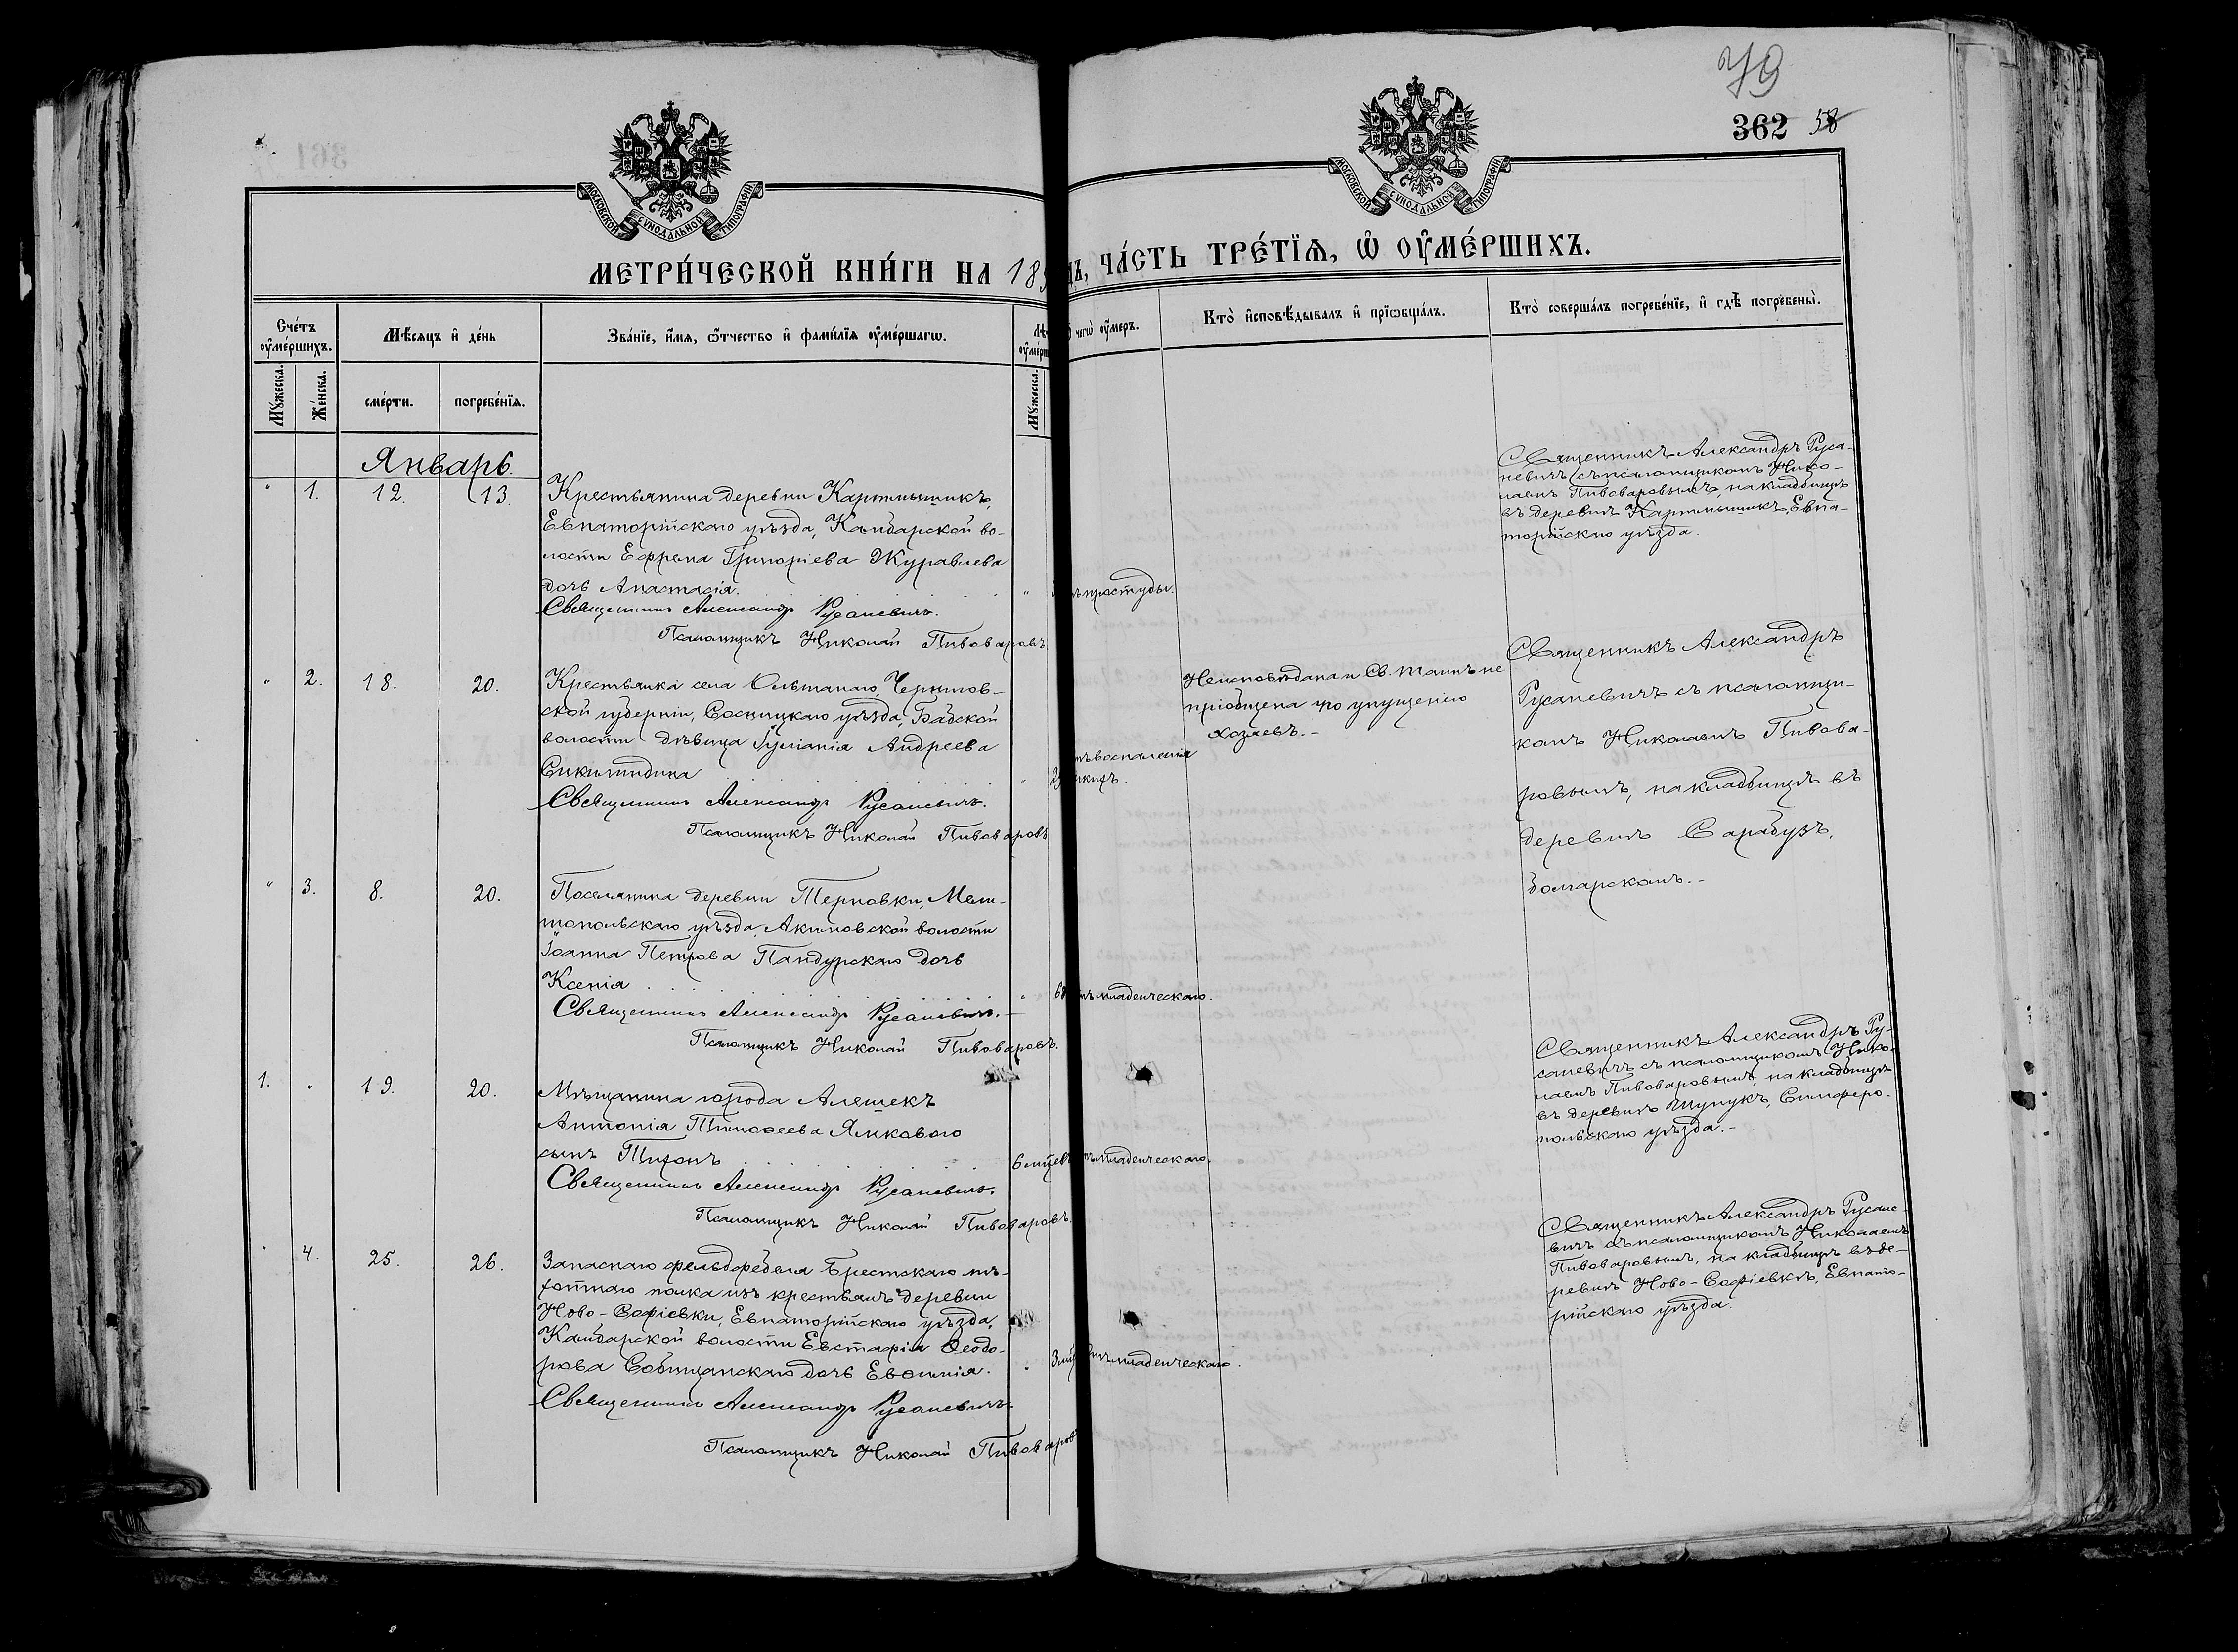 79
362 58
МОСКОВСКОЙ СУНОДАЛЬНОЙ ТИПОГРАФІИ
МОСКОВСКОЙ СУНОДАЛЬНОЙ ТИПОГРАФІИ
МЕТРИ́ЧЕСКОЙ КНИ́ГИ НА 189
ДЪ, ЧА́СТЬ ТРЕ́ТЇѦ, Ѡ ОУ҆МЕ́РШИХЪ.
Сче́тъ оу҆ме́ршихъ.
Мѣ́сяцъ и҆ де́нь
Зва́нїе, и҆́мя, ѻ҆́тчество и҆ фами́лїя оу҆ме́ршагѡ.
чегѡ̀ оу҆́меръ.
Кто̀ и҆сповѣ́дывалъ и҆ прїѡбща́лъ.
Кто̀ соверша́лъ погребе́нїе, и҆ гдѣ̀ погребены̀.
Мꙋ́жеска.
Же́нска.
сме́рти.
погребе́нїя.
Мꙋ́жеска.
Январь.
" 1. 12. 13. Крестьянина деревни Картмышикъ,
Евпаторійскаго уѣзда, Камбарской во-
лости Ефрема Григоріева Журавлева
дочь Анастасія.
простуды.
Священникъ Александръ Русаневичъ.
Псаломщикъ Николай Пивоваровъ.
Священникъ Александръ Руса-
невичъ съ псаломщикомъ Нико-
лаемъ Пивоваровымъ, на кладбищѣ
въ деревнѣ Картмышикъ, Евпа-
торійскаго уѣзда.
" 2. 18. 20. Крестьянка села Ольшанаго, Чернигов-
ской губерніи, Сосницкаго уѣзда, Бабской
волости дѣвица Іуліанія Андреева
воспаленія
Священникъ Александръ Русаневичъ.
Псаломщикъ Николай Пивоваровъ
Неисповѣдана и Св. Таинъ не
пріобщена по упущенію
хозяевъ.-
Священникъ Александръ
Русаневичъ съ псаломщи-
комъ Николаемъ Пивова-
ровымъ, на кладбищѣ въ
деревнѣ Сарабузъ,
болгарскомъ.-
" 3. 8. 20. Поселянина деревни Терновки, Мели-
топольскаго уѣзда, Акимовской волости
Іоанна Петрова Пандурскаго дочь
Ксенія
младенческаго.
Священникъ Александръ Русаневичъ.-
Псаломщикъ Николай Пивоваровъ.
1. " 19. 20. Мѣщанина города Алешекъ
Антонія Тимофеева Ямковаго
сынъ Тихонъ
6 мцев младенческаго.
Священникъ Александръ Русаневичъ.
Псаломщикъ Николай Пивоваровъ.
Священникъ Александръ Ру-
саневичъ съ псаломщикомъ Нико-
лаемъ Пивоваровымъ, на кладбищѣ
въ деревнѣ Шунукъ, Симферо-
польскаго уѣзда.-
" 4. 25. 26. Запаснаго фельдфебеля Брестскаго пѣ-
хотнаго полка изъ крестьянъ деревни
Ново-Софіевки, Евпаторійскаго уѣзда,
Камбарской волости Евстафія Ѳеодо-
рова дочь Евѳимія.
младенческаго.
Священникъ Александръ Русаневичъ
Псаломщикъ Николай Пивоваров
Священникъ Александръ Русане-
вичъ съ псаломщикомъ Николаемъ
Пивоваровымъ, на кладбищѣ въ де-
ревнѣ Ново-Софіевкѣ, Евпато-
рійскаго уѣзда.